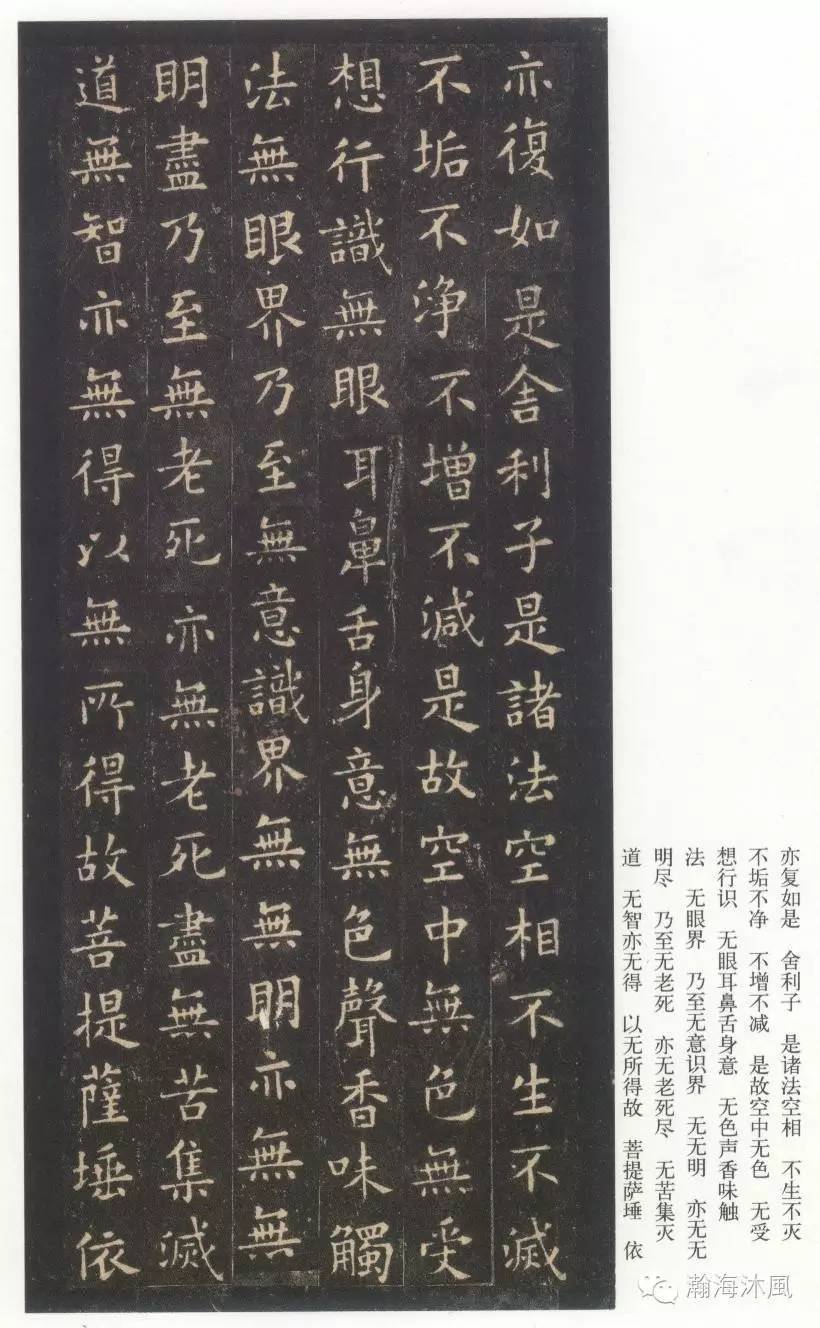 亦復如是舍利子是諸法空相不生不滅
不垢不淨不增不減是故空中無色無受
想行識無眼耳鼻舌身意無色聲香味觸
法無眼界乃至無意識界無無明亦無無
明盡乃至無老死亦無老死盡無苦集滅
道無智亦無得以無所得故菩提薩埵依
亦复如是 舍利子 是诸法空相 不生不灭
不垢不净 不增不减 是故空中无色 无受
想行识 无眼耳鼻舌身意 无色声香味触
法 无眼界 乃至无意识界 无无明 亦无无
明尽 乃至无老死 亦无老死尽 无苦集灭
道 无智亦无得 以无所得故 菩提萨埵 依
瀚海沐風